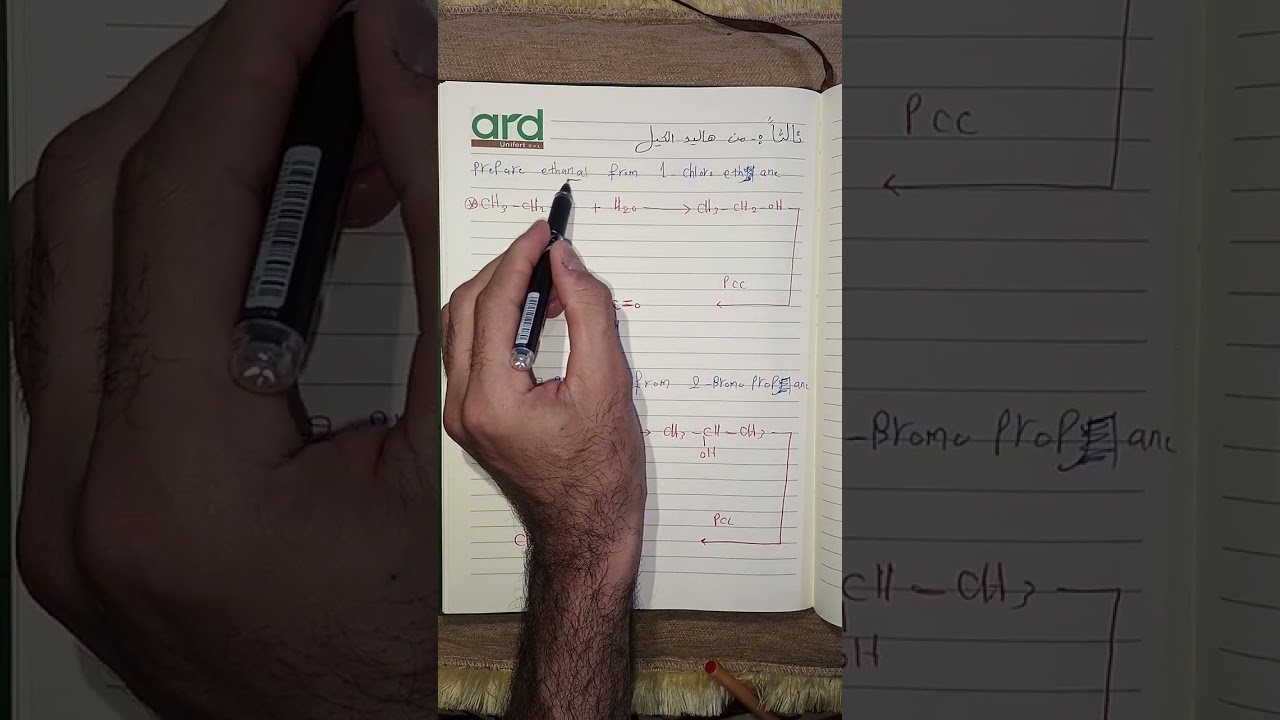 ard
Unifert S.A.L
ثالثاً :- من هاليد الكيل
Prepare ethanal from 1- chloro ethane
CH3 - CH2 + H2O → CH3 - CH2 - OH
PCC
C=O
from 2-Bromo Propane
→ CH3 - CH - CH3
OH
PCC
C